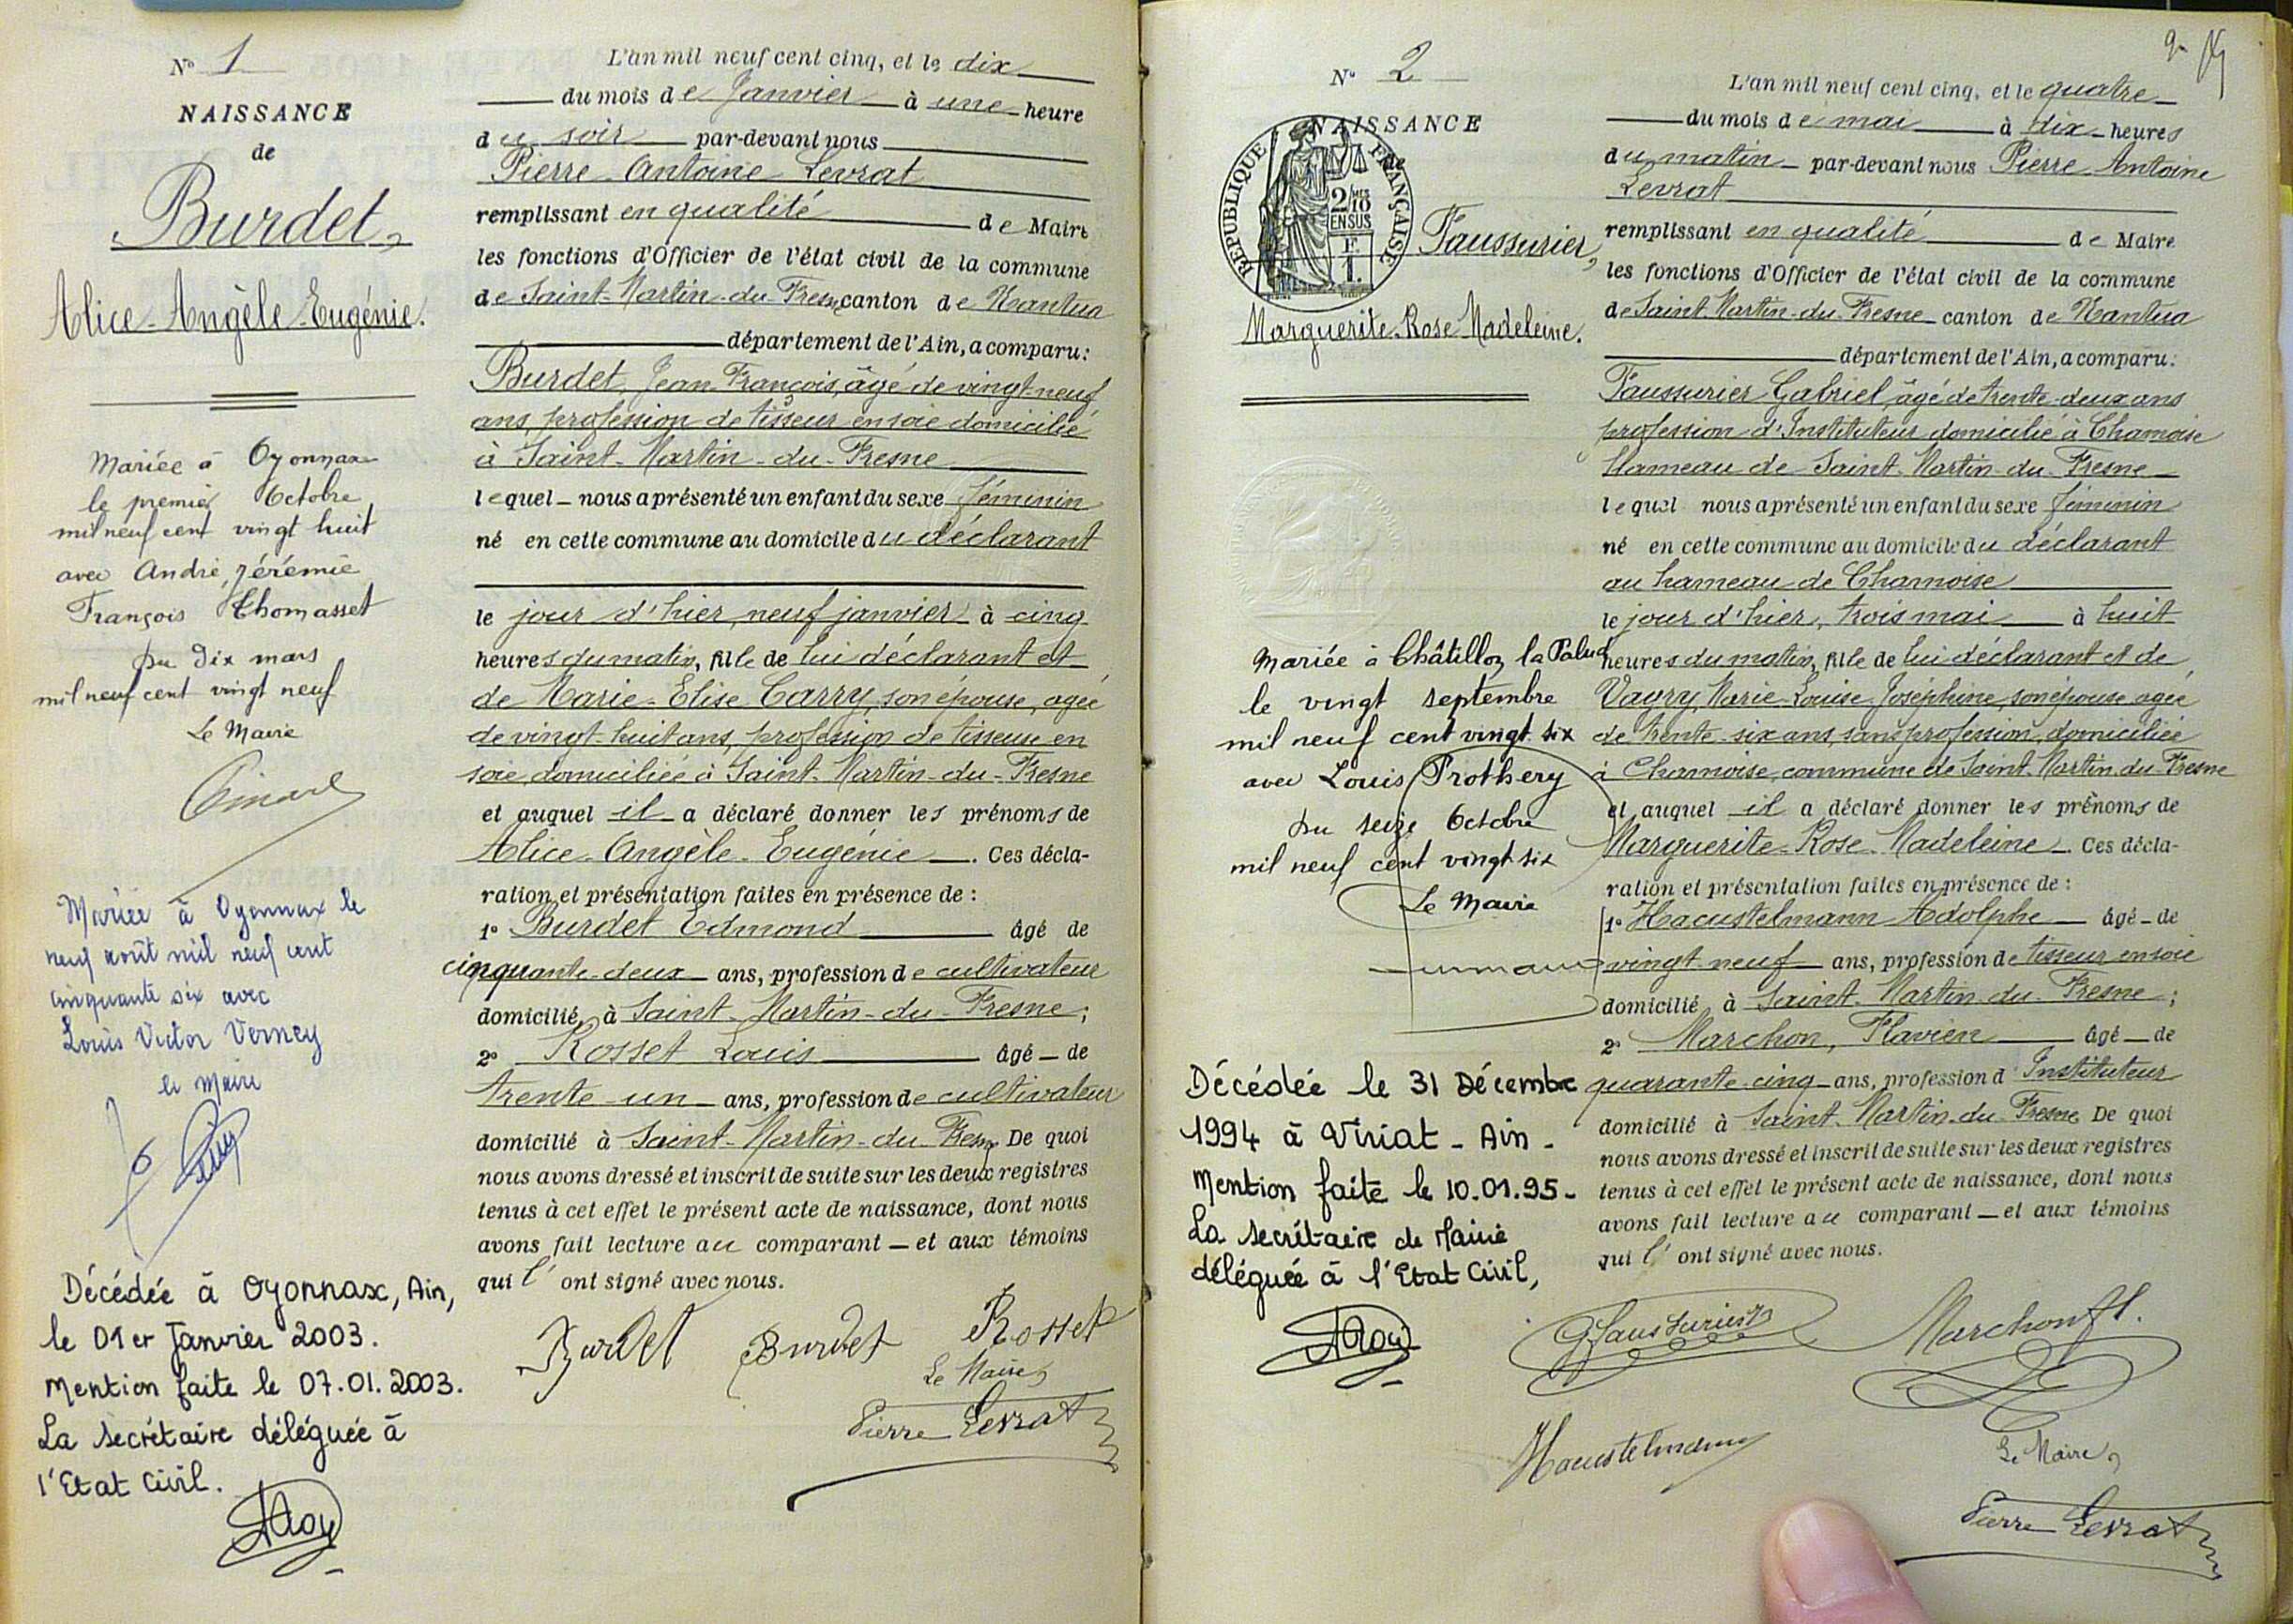 N° 1
NAISSANCE
de
Burdet,
Alice-Angèle-Eugénie.
Mariée à Oyonnax
le premier Octobre
mil neuf cent vingt huit
avec André, Jérémie
François Thomasset
Du Dix mars
mil neuf cent vingt neuf
Le Maire
Mariée à Oyonnax le
neuf août mil neuf cent
cinquante six avec
Louis Victor Verney
le Maire
Décédée à Oyonnax, Ain,
le 01er Janvier 2003.
Mention faite le 07.01.2003.
La secrétaire déléguée à
l'Etat Civil.
L'an mil neuf cent cinq, et le dix
du mois de Janvier à une heure
du soir par-devant nous
Pierre Antoine Levrat
remplissant en qualité de Maire
les fonctions d'Officier de l'état civil de la commune
de Saint-Martin-du-Fresne canton de Nantua
département de l'Ain, a comparu:
Burdet, Jean François, âgé de vingt-neuf
ans, profession de tisseur en soie domicilié
à Saint-Martin-du-Fresne
lequel nous a présenté un enfant du sexe féminin
né en cette commune au domicile du déclarant
le jour d'hier, neuf janvier à cinq
heures du matin, fille de lui déclarant et
de Marie-Elise Carry, son épouse, agée
de vingt-huit ans, profession de tisseuse en
soie, domiciliée à Saint-Martin-du-Fresne
et auquel il a déclaré donner les prénoms de
Alice-Angèle-Eugénie. Ces décla-
ration et présentation faites en présence de :
1° Burdet Edmond âgé de
cinquante-deux ans, profession de cultivateur
domicilié à Saint-Martin-du-Fresne;
2° Rosset Louis âgé de
trente-un ans, profession de cultivateur
domicilié à Saint-Martin-du-Fresne De quoi
nous avons dressé et inscrit de suite sur les deux registres
tenus à cet effet le présent acte de naissance, dont nous
avons fait lecture au comparant et aux témoins
qui l'ont signé avec nous.
Burdet Burdet Rosset
Le Maire,
Pierre Levrat
N° 2
NAISSANCE
de
RÉPUBLIQUE FRANÇAISE
2/10
EN SUS
Faussurier,
Marguerite-Rose-Madeleine.
Mariée à Châtillon la Palud
le vingt septembre
mil neuf cent vingt six
avec Louis Prothery
Du seize Octobre
mil neuf cent vingt six
Le Maire
Décédée le 31 Décembre
1994 à Viriat - Ain -
Mention faite le 10.01.95 -
La secrétaire de Mairie
déléguée à l'Etat Civil,
L'an mil neuf cent cinq, et le quatre
du mois de mai à dix heures
du matin par-devant nous Pierre Antoine
Levrat
remplissant en qualité de Maire
les fonctions d'Officier de l'état civil de la commune
de Saint-Martin-du-Fresne canton de Nantua
département de l'Ain, a comparu:
Faussurier Gabriel, âgé de trente-deux ans
profession d'Instituteur domicilié à Chamoise
Hameau de Saint-Martin-du-Fresne
lequel nous a présenté un enfant du sexe féminin
né en cette commune au domicile du déclarant
au hameau de Chamoise
le jour d'hier, trois mai à huit
heures du matin, fille de lui déclarant et de
Vagry, Marie-Louise-Joséphine, son épouse agée
de trente-six ans, sans profession, domiciliée
à Chamoise, commune de Saint-Martin-du-Fresne
et auquel il a déclaré donner les prénoms de
Marguerite-Rose-Madeleine. Ces décla-
ration et présentation faites en présence de :
1° Hacustelmann Adolphe âgé de
vingt-neuf ans, profession de tisseur en soie
domicilié à Saint-Martin-du-Fresne;
2° Marchon, Flavien âgé de
quarante-cinq ans, profession d'Instituteur
domicilié à Saint-Martin-du-Fresne De quoi
nous avons dressé et inscrit de suite sur les deux registres
tenus à cet effet le présent acte de naissance, dont nous
avons fait lecture au comparant et aux témoins
qui l'ont signé avec nous.
G. Faussurier Marchon fl.
Hacustelmann
Le Maire,
Pierre Levrat